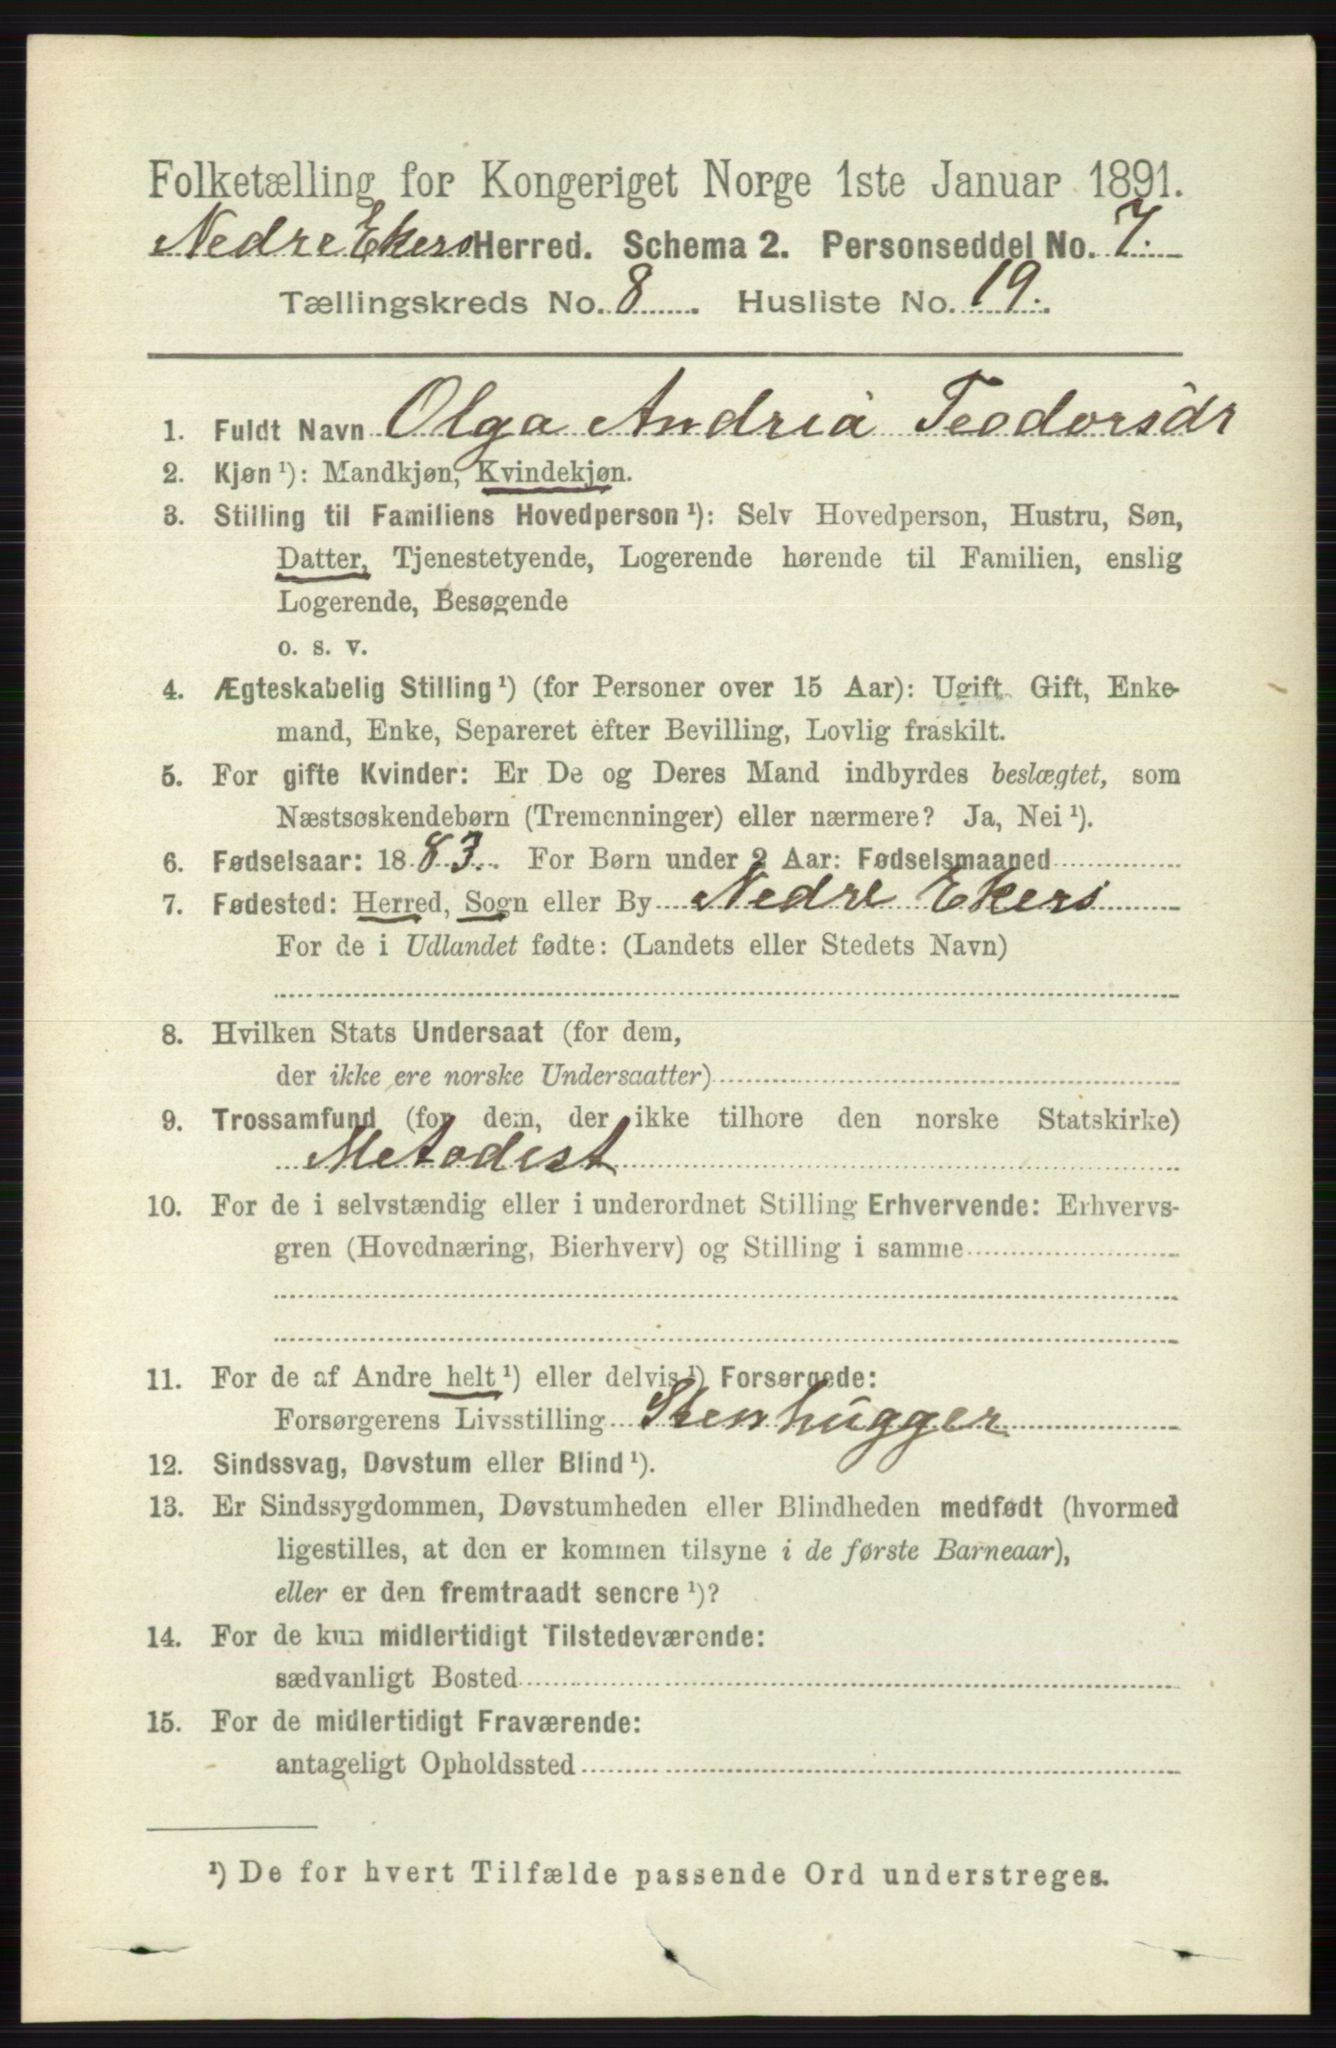 Folketælling for Kongeriget Norge 1ste Januar 1891.
Nedre Ekers Herred. Schema 2. Personseddel No. 7.
Tællingskreds No. 8. Husliste No. 19.
1. Fuldt Navn Olga Andria Teodorsdr
2. Kjøn ¹): Mandkjøn, Kvindekjøn.
3. Stilling til Familiens Hovedperson ¹): Selv Hovedperson, Hustru, Søn,
Datter, Tjenestetyende, Logerende hørende til Familien, enslig
Logerende, Besøgende
o. s. v.
4. Ægteskabelig Stilling ¹) (for Personer over 15 Aar): Ugift, Gift, Enke-
mand, Enke, Separeret efter Bevilling, Lovlig fraskilt.
5. For gifte Kvinder: Er De og Deres Mand indbyrdes beslægtet, som
Næstsøskendebørn (Tremenninger) eller nærmere? Ja, Nei ¹).
6. Fødselsaar: 1883. For Børn under 2 Aar: Fødselsmaaned
7. Fødested: Herred, Sogn eller By Nedre Ekers
For de i Udlandet fødte: (Landets eller Stedets Navn)
8. Hvilken Stats Undersaat (for dem,
der ikke ere norske Undersaatter)
9. Trossamfund (for dem, der ikke tilhøre den norske Statskirke)
Metodist
10. For de i selvstændig eller i underordnet Stilling Erhvervende: Erhvervs-
gren (Hovednæring, Bierhverv) og Stilling i samme
11. For de af Andre helt ¹) eller delvis ¹) Forsørgede:
Forsørgerens Livsstilling Stenhugger
12. Sindssvag, Døvstum eller Blind ¹).
13. Er Sindssygdommen, Døvstumheden eller Blindheden medfødt (hvormed
ligestilles, at den er kommen tilsyne i de første Barneaar),
eller er den fremtraadt senere ¹)?
14. For de kun midlertidigt Tilstedeværende:
sædvanligt Bosted
15. For de midlertidigt Fraværende:
antageligt Opholdssted
¹) De for hvert Tilfælde passende Ord understreges.